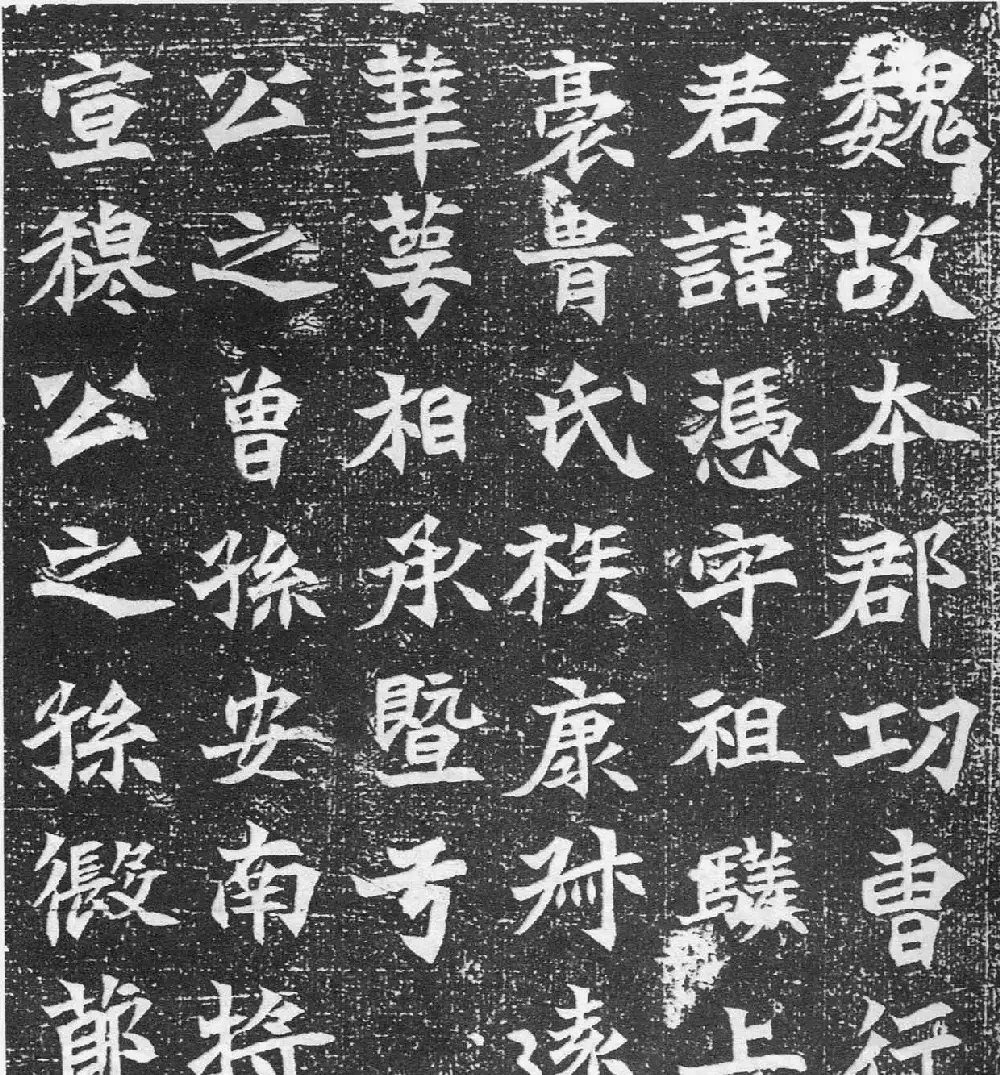 魏故本郡功曹行
君諱憑字祖驎上
裔胄氏族康叔遠
華萼相承暨乎
公之曾孫安南將
宣穆公之孫假節